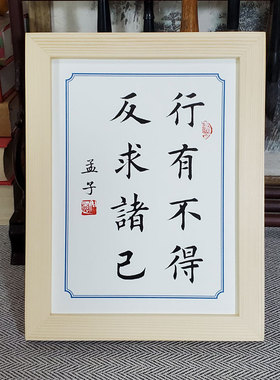 行有不得
反求諸己
孟子